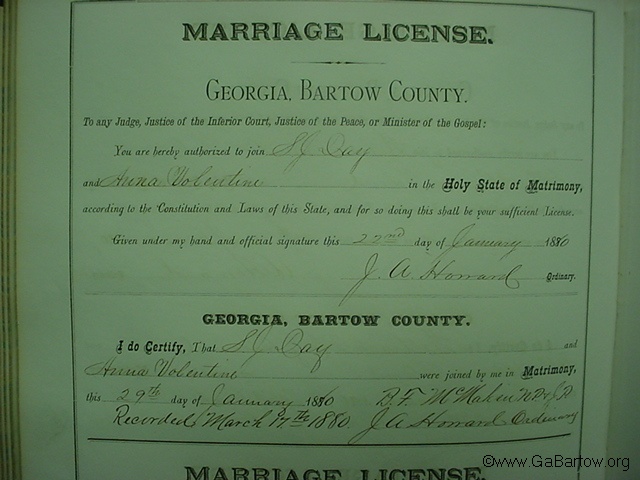 MARRIAGE LICENSE.
GEORGIA, BARTOW COUNTY.
To any Judge, Justice of the Inferior Court, Justice of the Peace, or Minister of the Gospel:
You are hereby authorized to join S J Day
and Anna Volentine in the Holy State of Matrimony,
according to the Constitution and Laws of this State, and for so doing this shall be your sufficient License.
Given under my hand and official signature this 22nd day of January 1880
J. A. Howard Ordinary.
GEORGIA, BARTOW COUNTY.
I do Certify, That S. J. Day and
Anna Volentine were joined by me in Matrimony,
this 29th day of January 1880 McMahin
Recorded March 17th 1880 J A Howard Ordinary
MARRIAGE LICENSE.
©www.GaBartow.org